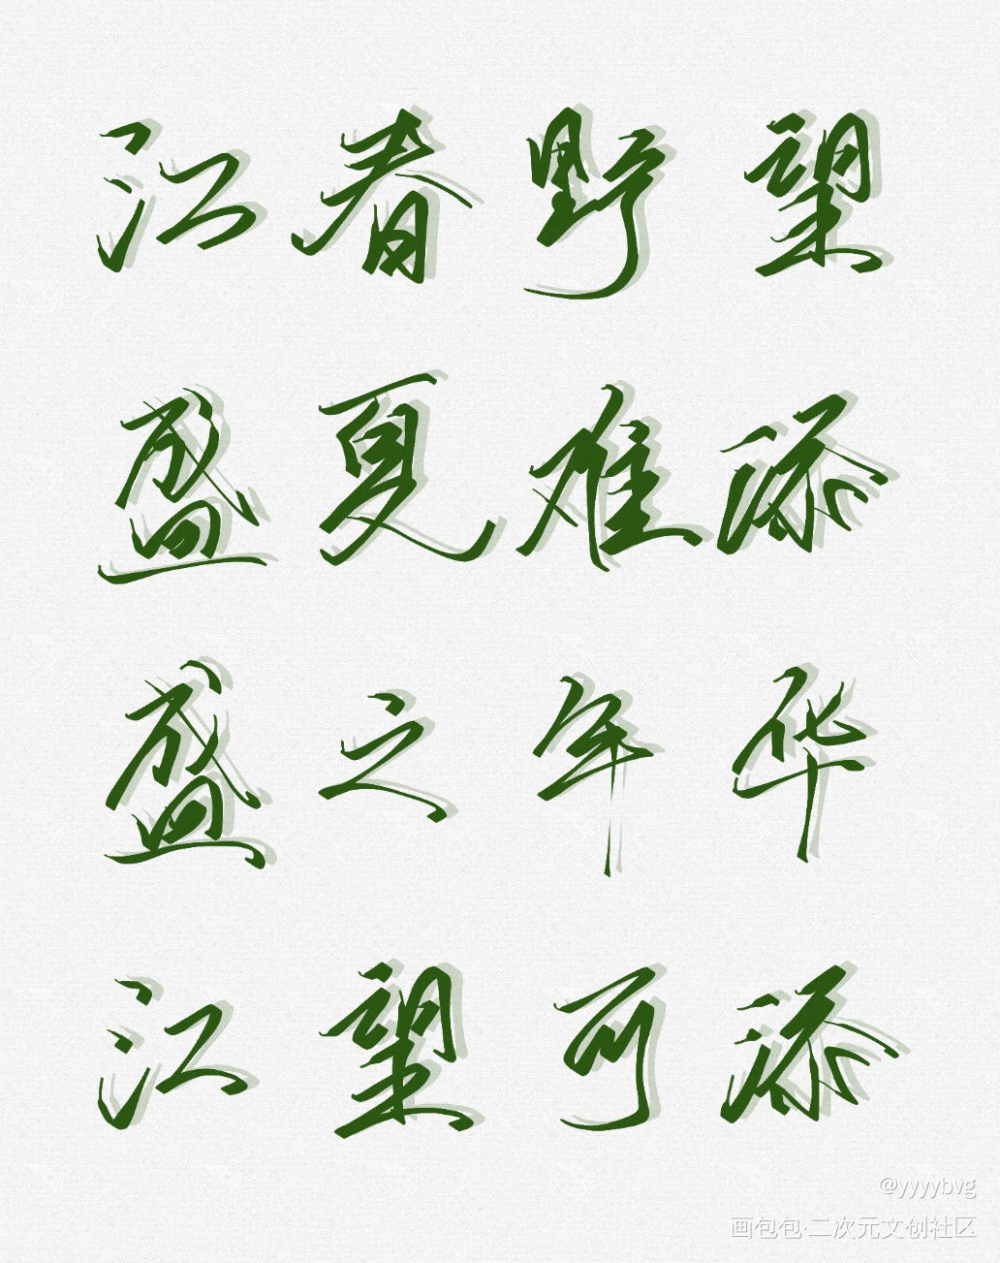 江春野望
盛夏难添
盛之年华
江望可添
@yyyybvg
画包包·二次元文创社区